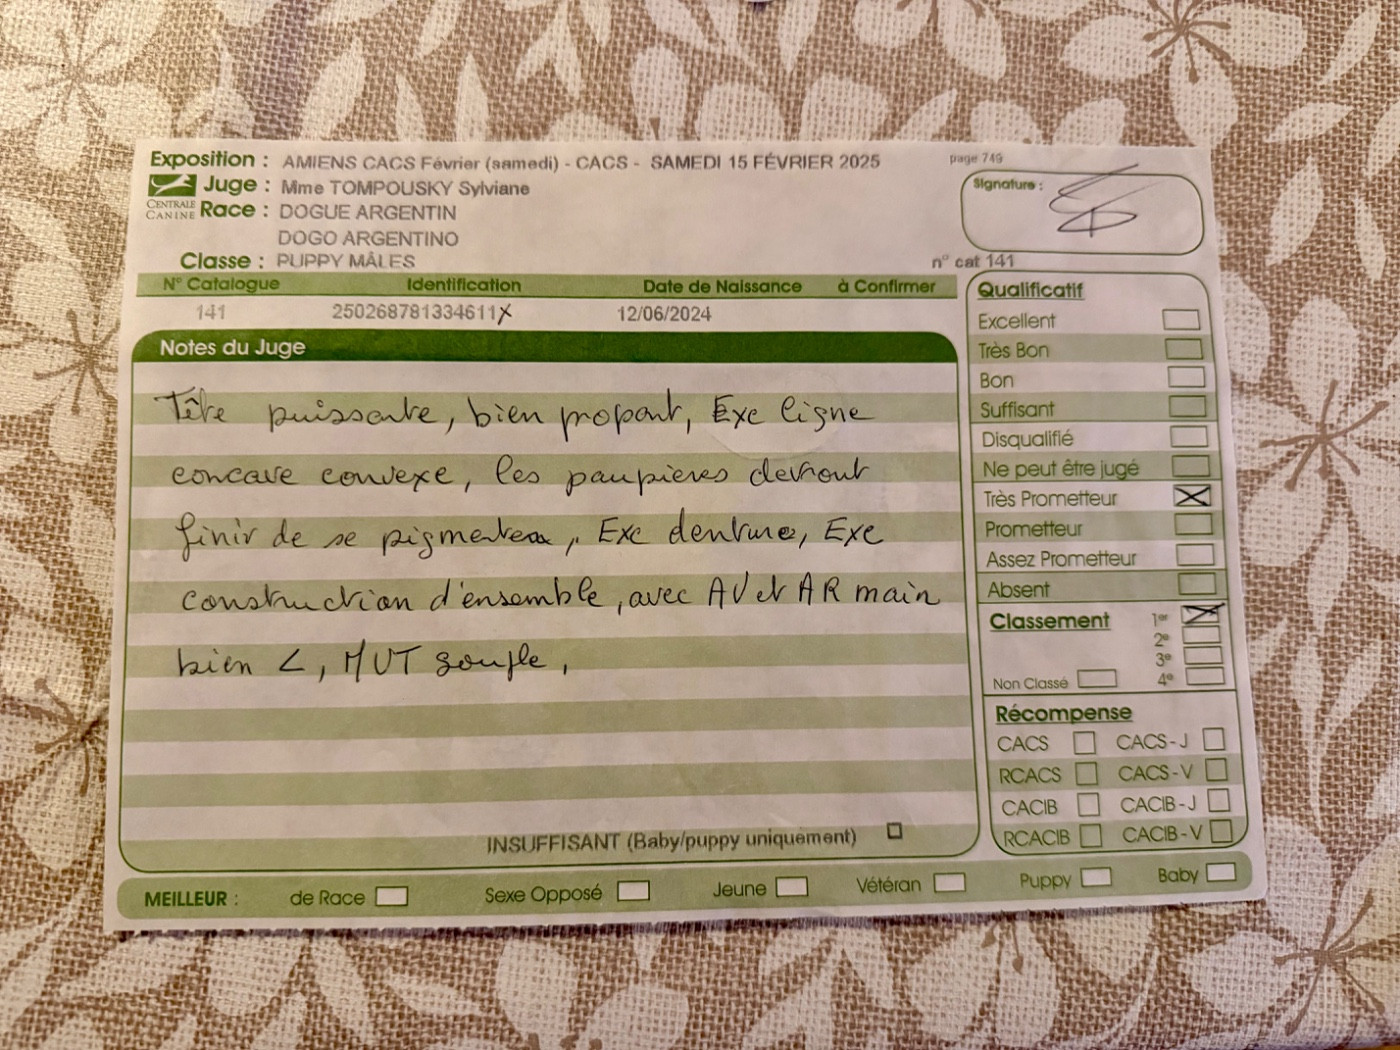 Exposition : AMIENS CACS Février (samedi) - CACS - SAMEDI 15 FÉVRIER 2025
page 749
CENTRALE CANINE
Juge : Mme TOMPOUSKY Sylviane
Signature :
Race : DOGUE ARGENTIN
DOGO ARGENTINO
Classe : PUPPY MÂLES
n° cat 141
N° Catalogue Identification Date de Naissance à Confirmer
141 250268781334611X 12/06/2024
Notes du Juge
Tête puissante, bien propont, Exc ligne
concave convexe, les paupières devront
finir de se pigmenter, Exc denture, Exc
construction d'ensemble, avec AV et AR main
bien <, MVT souple,
INSUFFISANT (Baby/puppy uniquement)
Qualificatif
Excellent
Très Bon
Bon
Suffisant
Disqualifié
Ne peut être jugé
Très Prometteur X
Prometteur
Assez Prometteur
Absent
Classement 1er X
2e
3e
Non Classé 4e
Récompense
CACS CACS-J
RCACS CACS-V
CACIB CACIB-J
RCACIB CACIB-V
MEILLEUR : de Race Sexe Opposé Jeune Vétéran Puppy Baby